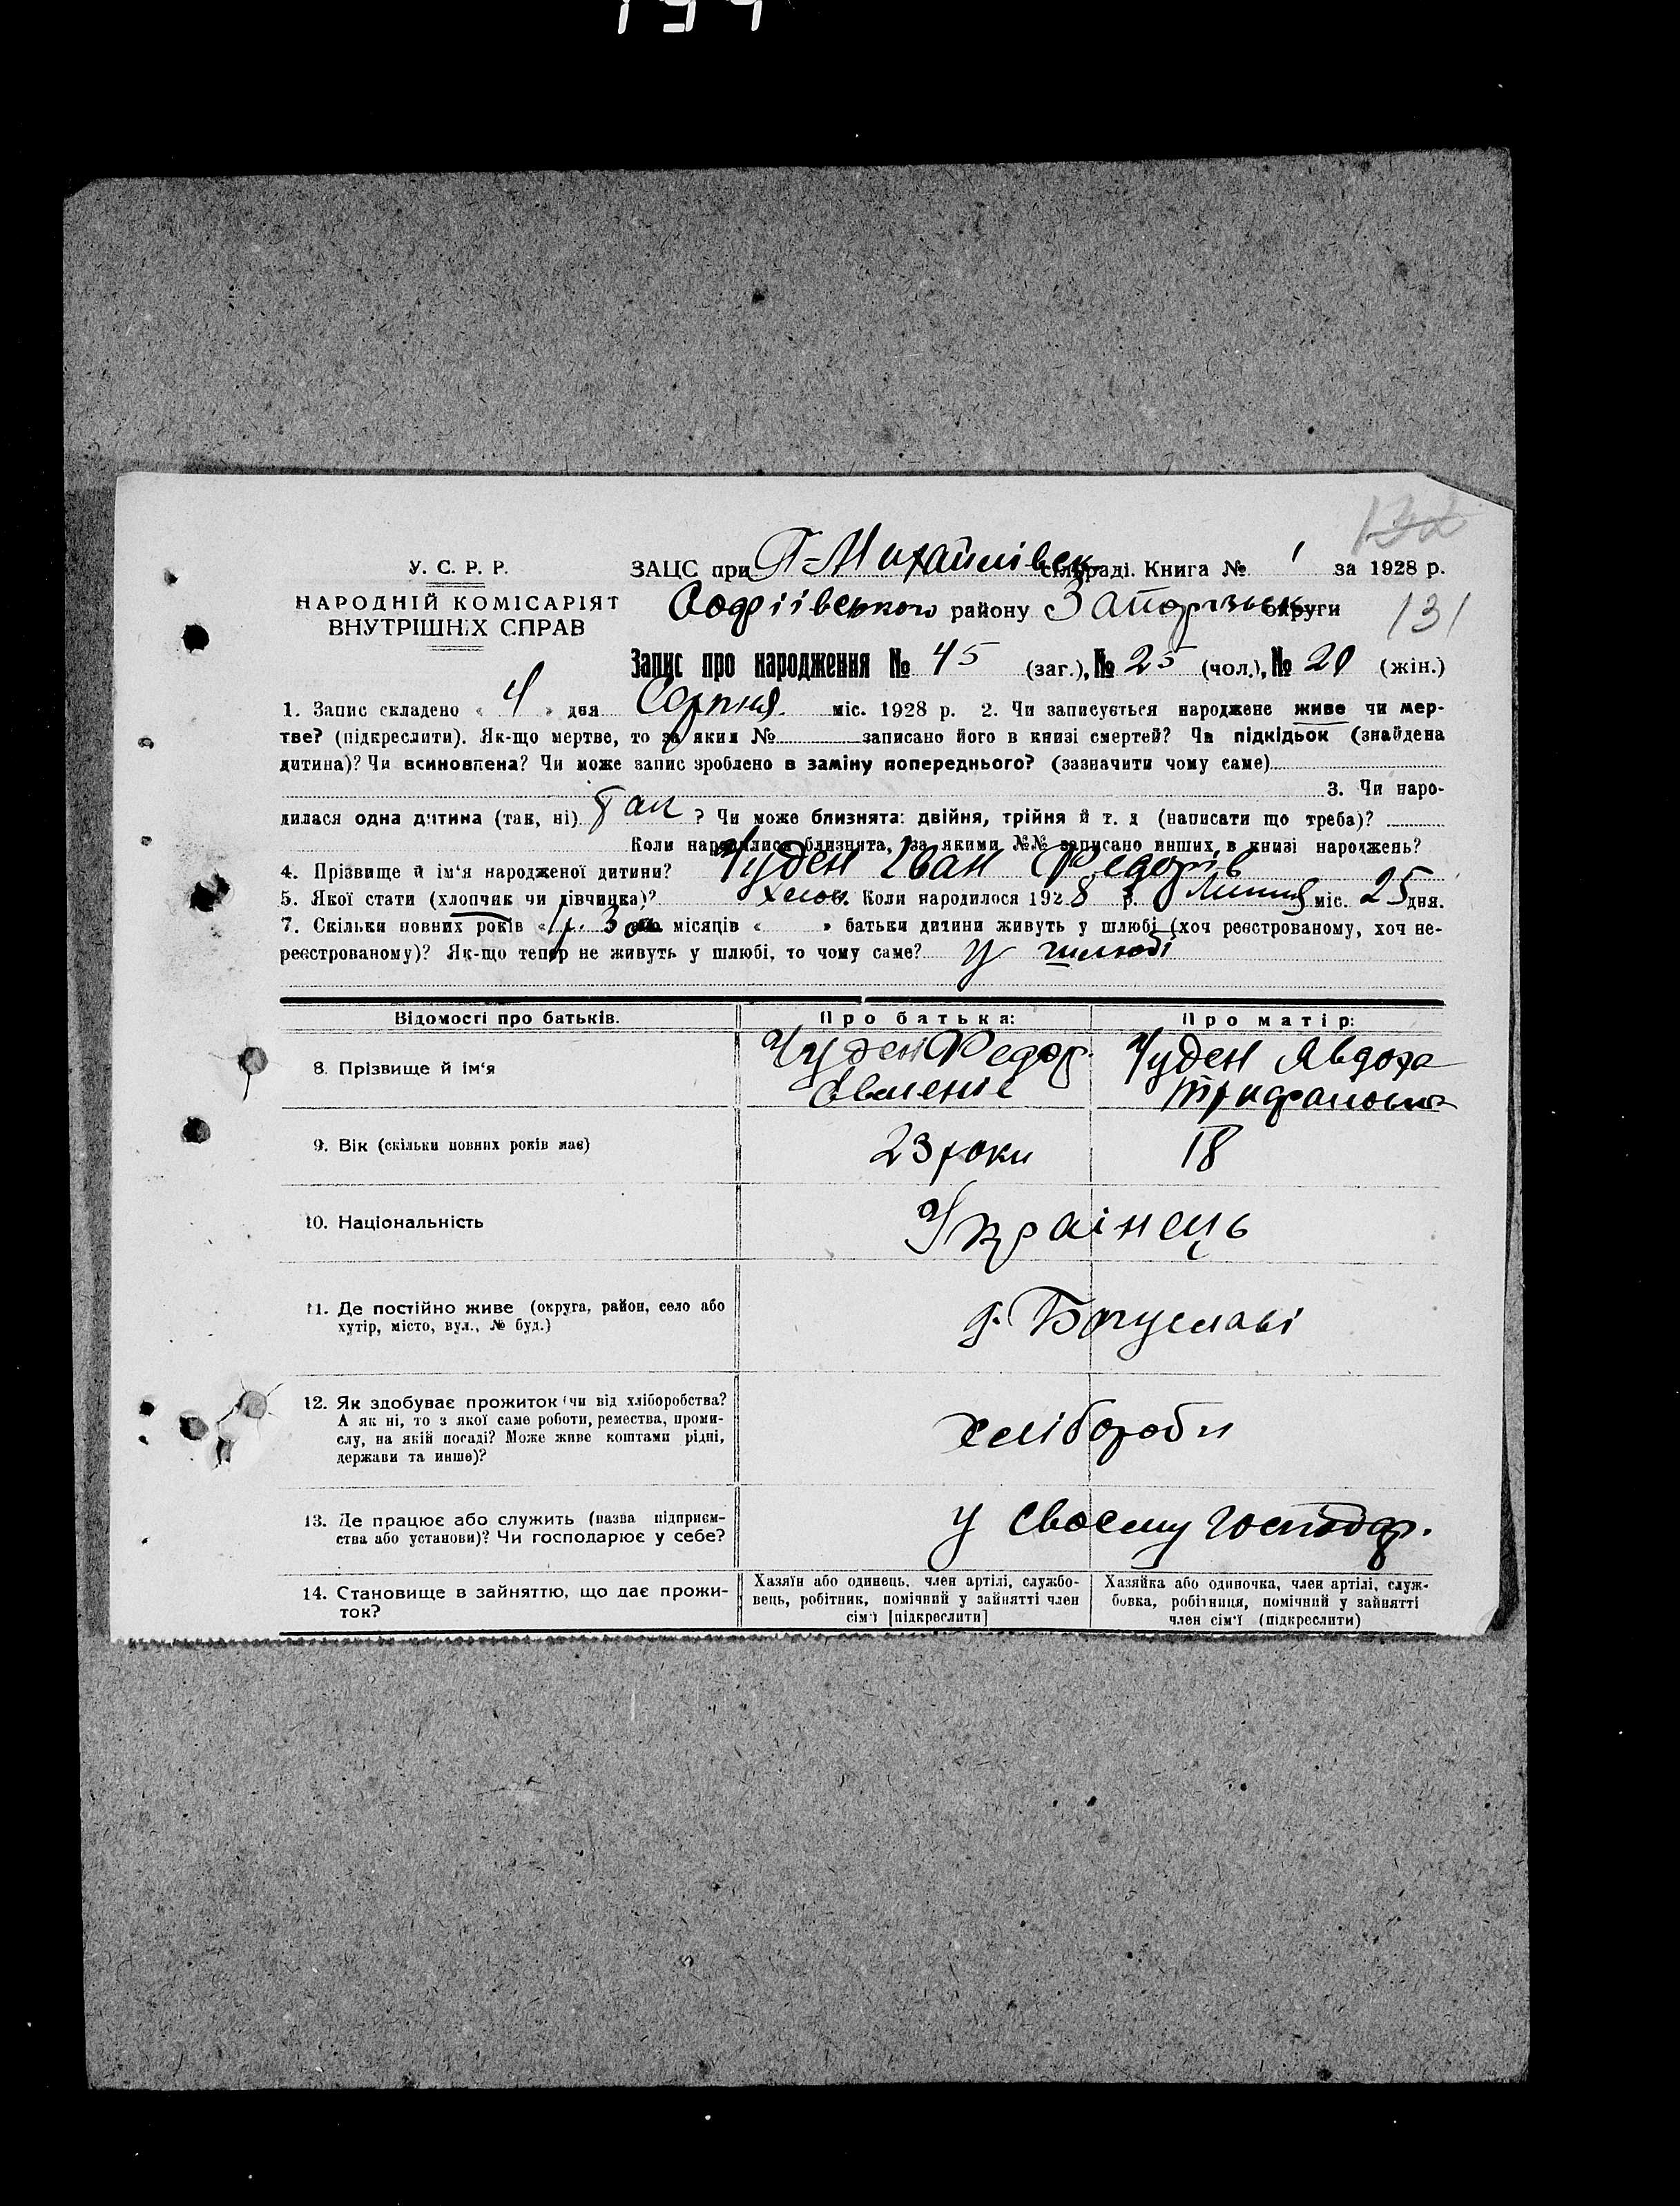 У. С. Р. Р.
НАРОДНІЙ КОМІСАРІЯТ
ВНУТРІШНІХ СПРАВ
132
131
ЗАЦС при П-Михайлівск сільраді. Книга № 1 за 1928 р.
Софіївського району Запорізьк округи
Запис про народження № 45 (заг.), № 25 (чол.), № 20 (жін.)
1. Запис складено « 4 » дня Серпня міс. 1928 р. 2. Чи записується народжене живе чи мер-
тве? (підкреслити). Як-що мертве, то за яким № записано його в книзі смертей? Чи підкідьок (знайдена
дитина)? Чи всиновлена? Чи може запис зроблено в заміну попереднього? (зазначити чому саме)
3. Чи наро-
дилася одна дитина (так, ні) Так ? Чи може близнята: двійня, трійня й т. д (написати що треба)?
Коли народилися близнята, за якими №№ записано инших в книзі народжень?
4. Прізвище й ім‘я народженої дитини? Чуден Іван Федорів
5. Якої стати (хлопчик чи дівчинка)? хлоп. Коли народилося 1928 р. Липня міс. 25 дня.
7. Скільки повних років « місяців « » батьки дитини живуть у шлюбі (хоч реєстрованому, хоч не-
реєстрованому)? Як-що тепер не живуть у шлюбі, то чому саме? У шлюбі
Відомості про батьків. Про батька: Про матір:
8. Прізвище й ім‘я Чуден Федор Чуден Явдоха
9. Вік (скільки повних років має) 23 роки 18
10. Національність Українець
11. Де постійно живе (округа, район, село або
хутір, місто, вул., № буд.) Богуславі
12. Як здобуває прожиток (чи від хліборобства?
А як ні, то з якої саме роботи, ремества, проми-
слу, на якій посаді? Може живе коштами рідні,
держави та инше)? хлібороби
13. Де працює або служить (назва підприєм-
ства або установи)? Чи господарює у себе? у своєму господар.
14. Становище в зайняттю, що дає прожи-
ток?
Хазяїн або одинець, член артілі, службо-
вець, робітник, помічний у зайнятті член
сім‘ї [підкреслити]
Хазяйка або одиночка, член артілі, служ-
бовка, робітниця, помічний у зайнятті
член сім‘ї (підкреслити)